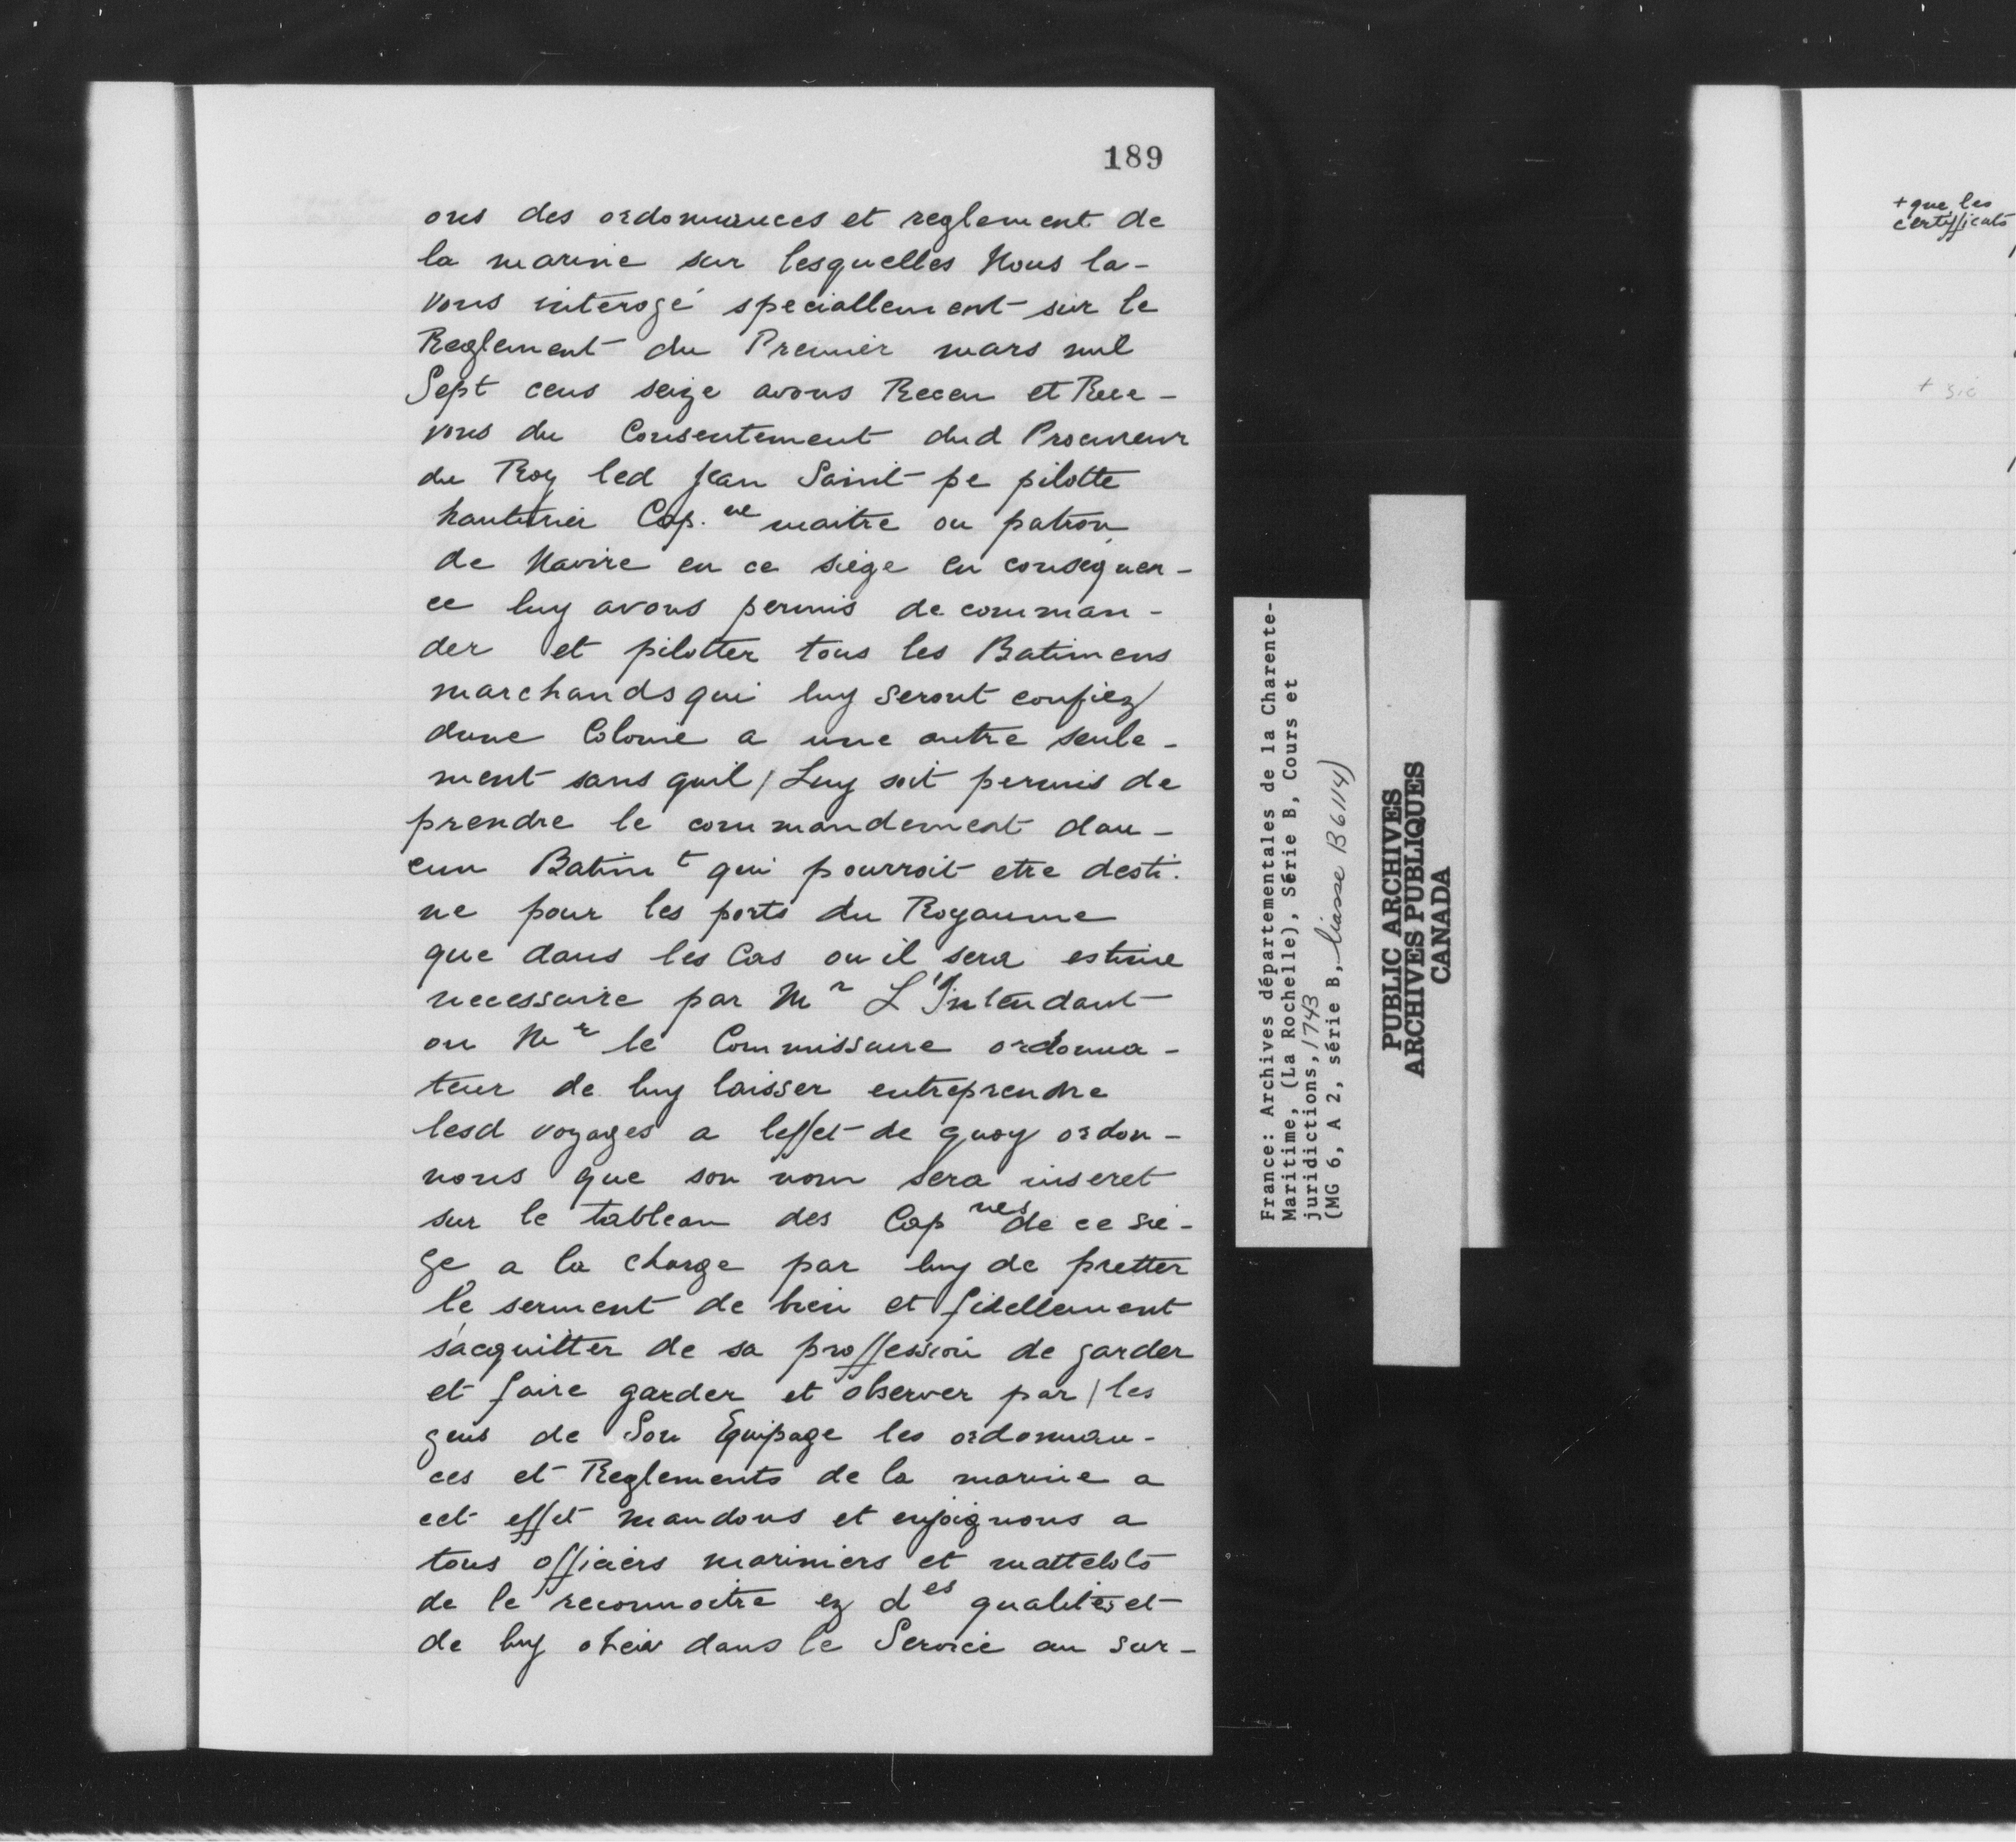 189
ons des ordonnances et reglement de
la marine sur lesquelles Nous la-
vons interogé speciallement sur le
Reglement du Premier mars mil
Sept cens seize avons Receu et Rece-
vons du Consentement dud Procureur
du Roy led Jean Saint-pe pilotte
hauturier Cap.ne maitre ou patron
de Navire en ce siège en consequen-
ce luy avons permis de comman-
der et pilotter tous les Batimens
marchands qui luy seront confiez
dune Colonie a une autre seule-
ment sans quil / Luy soit permis de
prendre le commandement dau-
cun Batimt qui pourroit etre desti-
ne pour les ports du Royaume
que dans les Cas ou il sera estimé
necessaire par Mr L'Intendant
ou Mr le Commissaire ordonna-
teur de luy laisser entreprendre
lesd voyages a leffet de quoy ordon-
nons que son nom sera inseret
sur le tableau des Capnes de ce sie-
ge a la charge par luy de pretter
le serment de bien et fidellement
s'acquitter de sa proffession de garder
et faire garder et observer par / les
gens de Son Equipage les ordonnan-
ces et Reglements de la marine a
cet effet mandons et enjoignons a
tous officiers mariniers et mattelots
de le reconnoitre ez des qualités et
de luy obeir dans le Service au sur-
France: Archives départementales de la Charente-
Maritime, (La Rochelle), Série B, Cours et
juridictions, 1743
(MG 6, A 2, série B, liasse B6114)
PUBLIC ARCHIVES
ARCHIVES PUBLIQUES
CANADA
+ que les
certifficats
+ sic